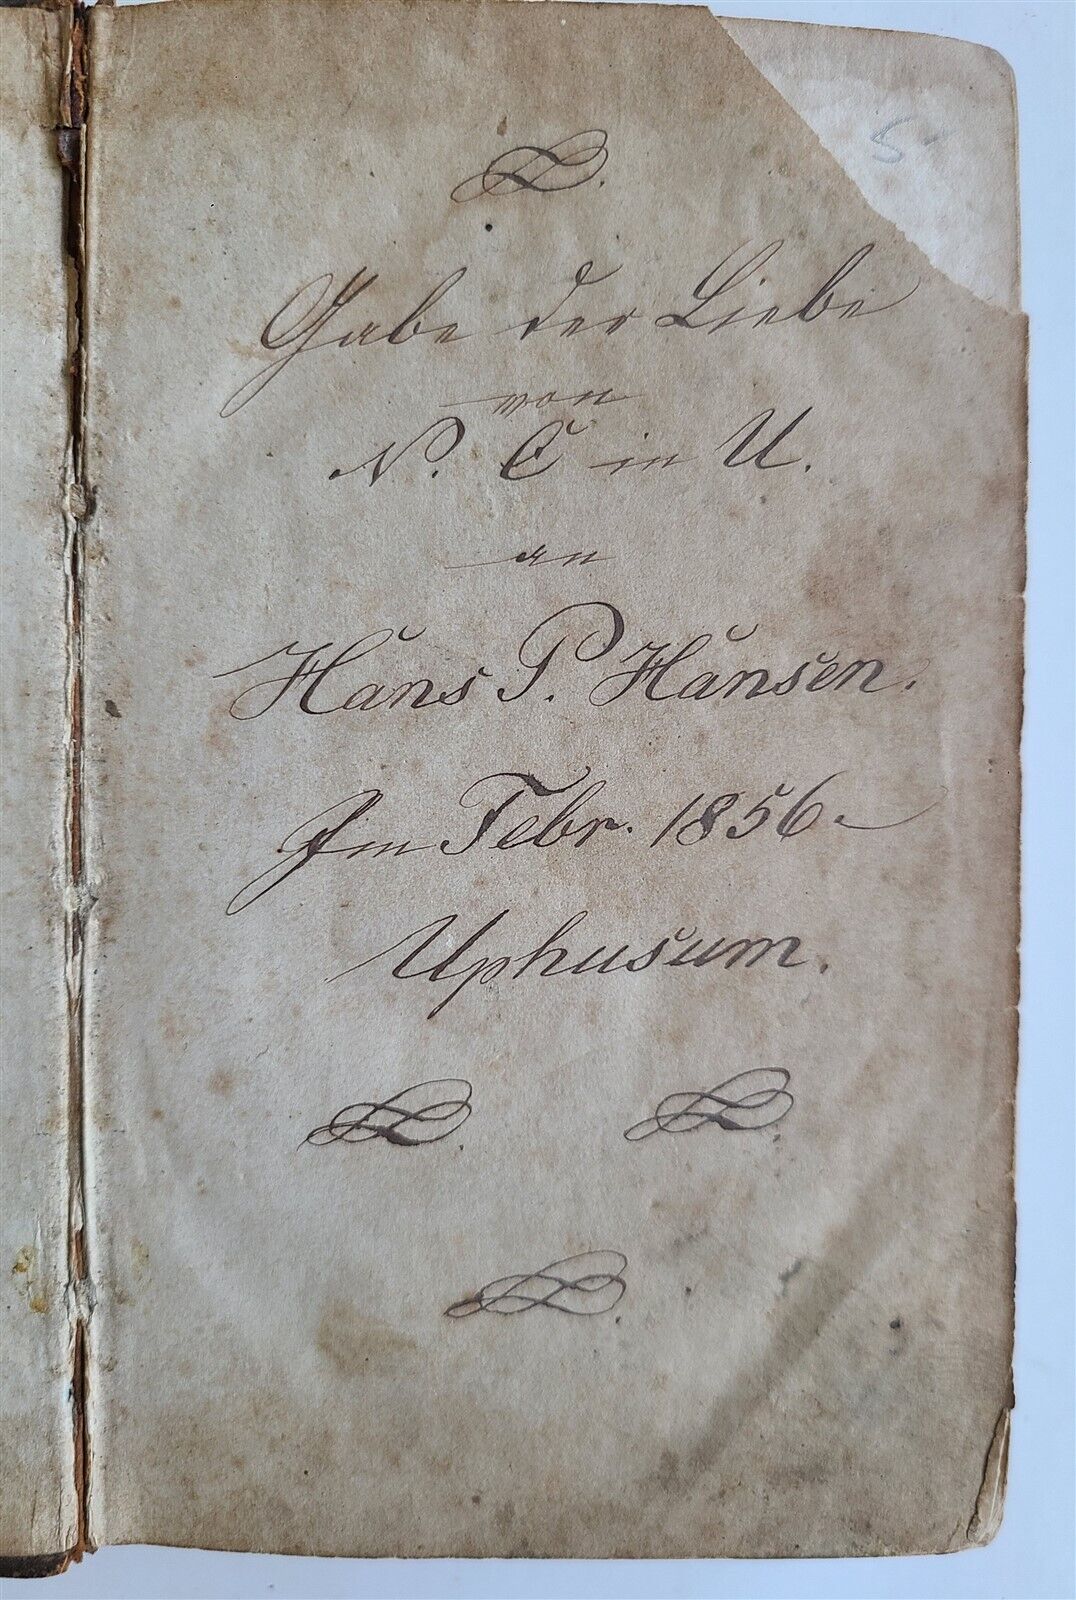 5
Gabe der Liebe
von
N. C in U.
an
Hans P. Hansen.
Im Febr. 1856.
Uphusum.